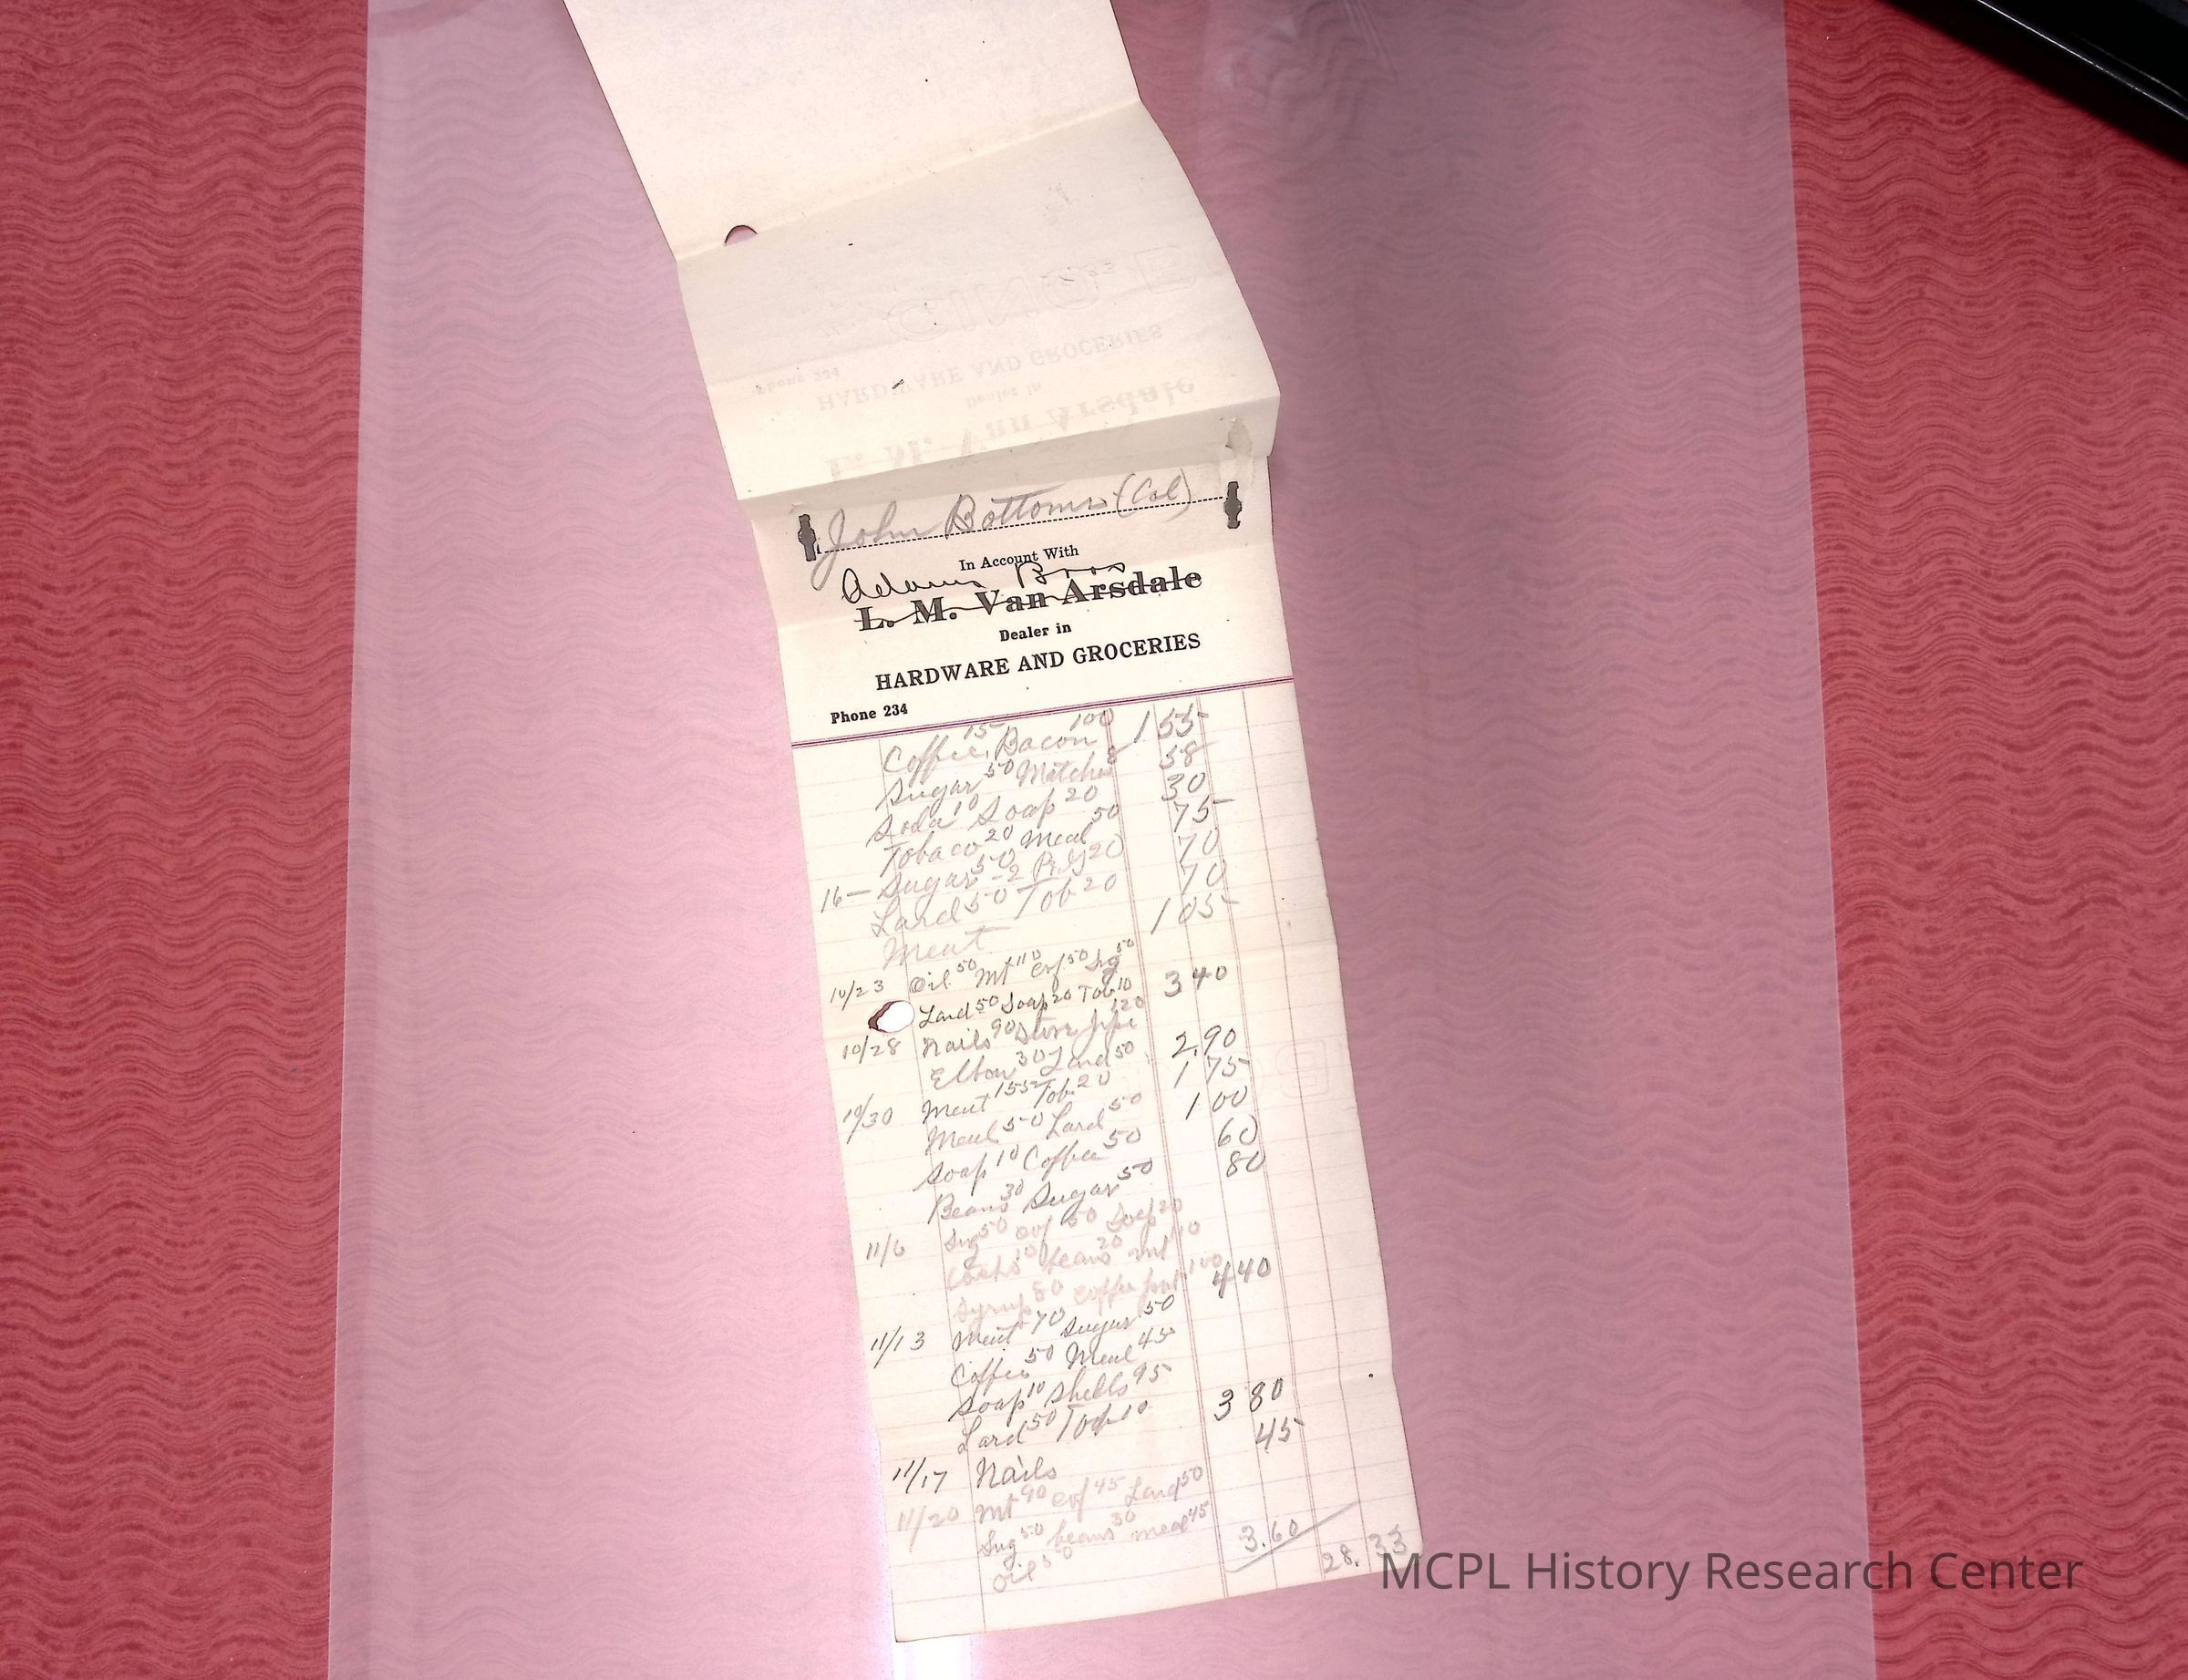 John Bottoms (Col)
In Account With
Adams Bros
L. M. Van Arsdale
Dealer in
HARDWARE AND GROCERIES
Phone 234
Coffee 15 Bacon 100 1 55
Sugar 50 Matches 8 58
Soda 10 Soap 20 30
Tobaco 20 Meal 50 75
16— Sugar 50 - 2 20 70
Lard 50 Tob 20 70
Meat 1 05
10/23 Oil 50 Mt 110 Cof 50 Sug 50
Lard 50 Soap 20 Tob 10 3 40
10/28 Nails 90 Stove Pipe 120
Elbow 30 Lard 50 2.90
10/30 Meat 155 Tob. 20 1 75
Meal 50 Lard 50 1 00
Soap 10 Coffee 50 60
Beans 30 Sugar 50 80
11/6 Sug 50 Cof 50 Soap 20
10 beans 20 mt
Syrup 80 coffee pot 100 4 40
11/13 Meat 70 Sugar 50
Coffee 50 Meal 45
Soap 10 Shells 95
Lard 50 Tob 10 3 80
11/17 Nails 45
11/20 Mt 90 Cof 45 Lard 50
Sug 50 beans 30 meal 45
Oil 50 3.60 28.33
MCPL History Research Center